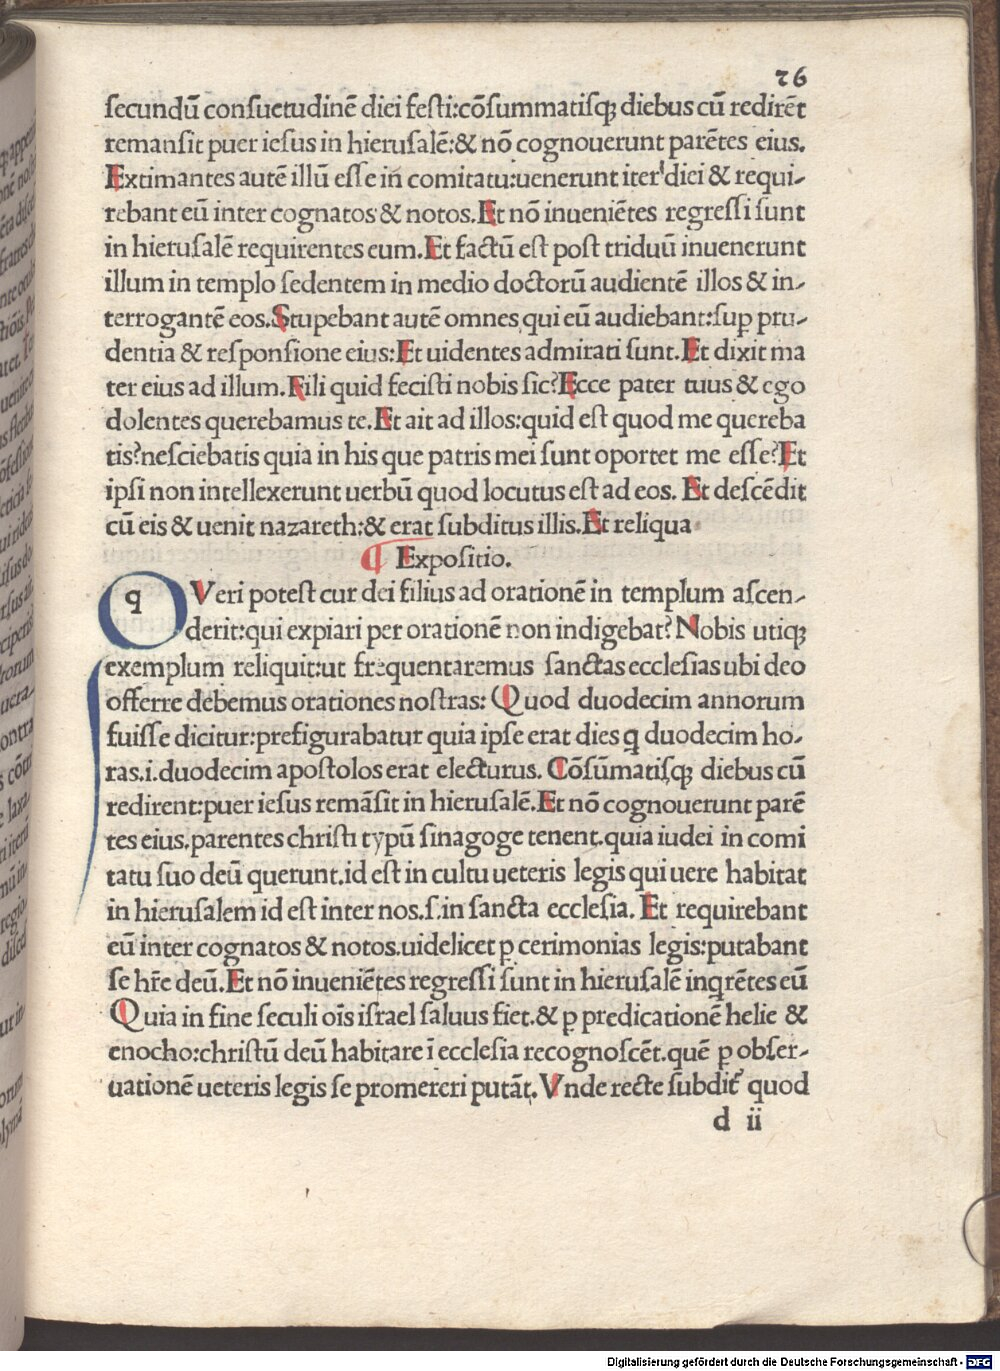 26
secundū consuetudinē diei festi:cōsummatisq; diebus cū redirēt
remansit puer iesus in hierusalē:& nō cognouerunt parētes eius.
Extimantes autē illū esse in comitatu:uenerunt iter diei & requi-
rebant eū inter cognatos & notos.Et nō inueniētes regressi sunt
in hierusalē requirentes eum.Et factū est post triduū inuenerunt
illum in templo sedentem in medio doctorū audientē illos & in-
terrogantē eos.Stupebant autē omnes qui eū audiebant:sup pru-
dentia & responsione eius:Et uidentes admirati sunt.Et dixit ma
ter eius ad illum.Fili quid fecisti nobis sic?Ecce pater tuus & ego
dolentes querebamus te.Et ait ad illos:quid est quod me quereba
tis?nesciebatis quia in his que patris mei sunt oportet me esse?Et
ipsi non intellexerunt uerbū quod locutus est ad eos. Et descēdit
cū eis & uenit nazareth:& erat subditus illis.Et reliqua.
¶ Expositio.
q Veri potest cur dei filius ad orationē in templum ascen-
derit:qui expiari per orationē non indigebat? Nobis utiq;
exemplum reliquit:ut frequentaremus sanctas ecclesias ubi deo
offerre debemus orationes nostras: Quod duodecim annorum
fuisse dicitur:prefigurabatur quia ipse erat dies q duodecim ho-
ras.i.duodecim apostolos erat electurus. Cōsūmatisq; diebus cū
redirent:puer iesus remāsit in hierusalē.Et nō cognouerunt parē
tes eius.parentes christi typū sinagoge tenent.quia iudei in comi
tatu suo deū querunt.id est in cultu ueteris legis qui uere habitat
in hierusalem id est inter nos.s.in sancta ecclesia. Et requirebant
eū inter cognatos & notos.uidelicet ꝑ cerimonias legis:putabant
se hr̄e deū.Et nō inueniētes regressi sunt in hierusalē inqrētes eū
Quia in fine seculi oīs israel saluus fiet.& ꝑ predicationē helie &
enocho:christū deū habitare ī ecclesia recognoscēt.quē ꝑ obser-
uationē ueteris legis se promereri putāt. Vnde recte subdit᷑ quod
d ii
Digitalisierung gefördert durch die Deutsche Forschungsgemeinschaft - DFG